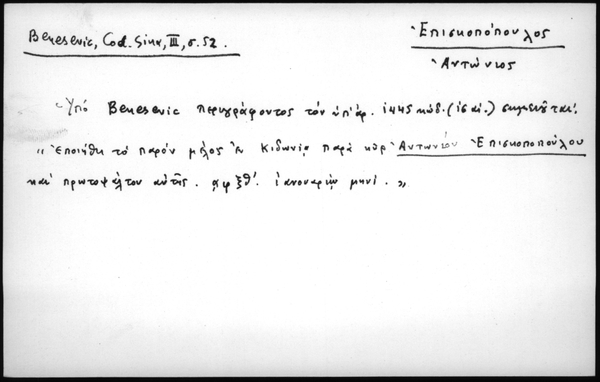 Benesevic, Cod. Sin., III, σ. 52.
Ἐπισκοπόπουλος
Ἀντώνιος
Ὑπό Benesevic περιγράφοντος τόν ὑπ' ἀρ. 1445 κώδ. (ις αἰ.) σημειοῦται:
"Ἐποιήθη τό παρόν μέλος ἐν Κιδωνίᾳ παρά κύρ Ἀντωνίου Ἐπισκοποπούλου
καί πρωτοψάλτου αὐτῆς. αφξθ'. ἰανουαρίῳ μηνί."